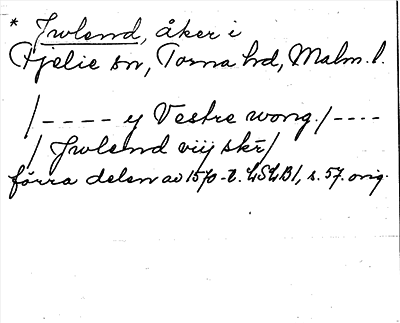 * Jwlend, åker i
Fjelie sn, Torna hd, Malm. l.
/---- y Vestre wong./----
/ Jwlend viij skr̄/
förra delen av 1570-t. LSLB1, s. 57. orig.